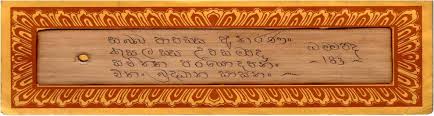 සබබ පාපසස අකරණං
කුසලසස උපසමපදා
සචිතත පරියොදපනං
එතං බුද්ධාන සාසනං
ධම්මපද
~ 183 ~